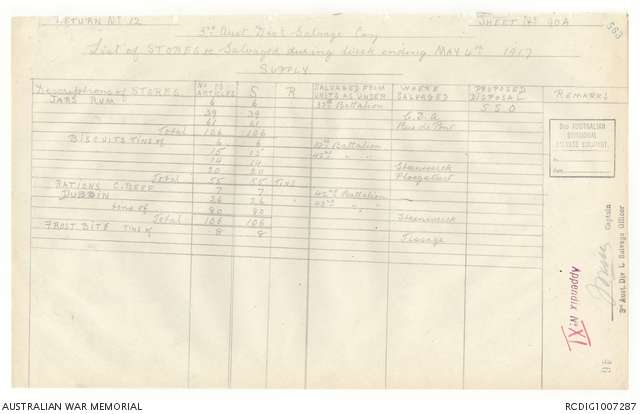 RETURN No 12
SHEET No 90A
503
3rd Aust Div'l Salvage Coy
List of STORES Salvaged during week ending MAY 4th 1917
SUPPLY
Descriptions of STORES No of ARTICLES S R SALVAGED FROM UNITS AS UNDER WHERE SALVAGED PROPOSED DISPOSAL REMARKS
JARS RUM 6 6 Battalion S S O
39 39
61 61 Rue de Pont
Total 106 106
BISCUITS TINS of 6 6 Battalion
15 15 " "
14 14 Steenwerck
20 20 Ploegsteert
Total 55 55 TINS
RATIONS C. BEEF 7 7 42nd Battalion
DUBBIN 26 26 " "
tins of 80 80 Steenwerck
Total 106 106
FROST BITE TINS of 8 8
3RD AUSTRALIAN
DIVISIONAL
SALVAGE COMPANY.
No.
Date
Captain
3rd Aust. Div L Salvage Officer
Appendix No XI
AUSTRALIAN WAR MEMORIAL
RCDIG1007287